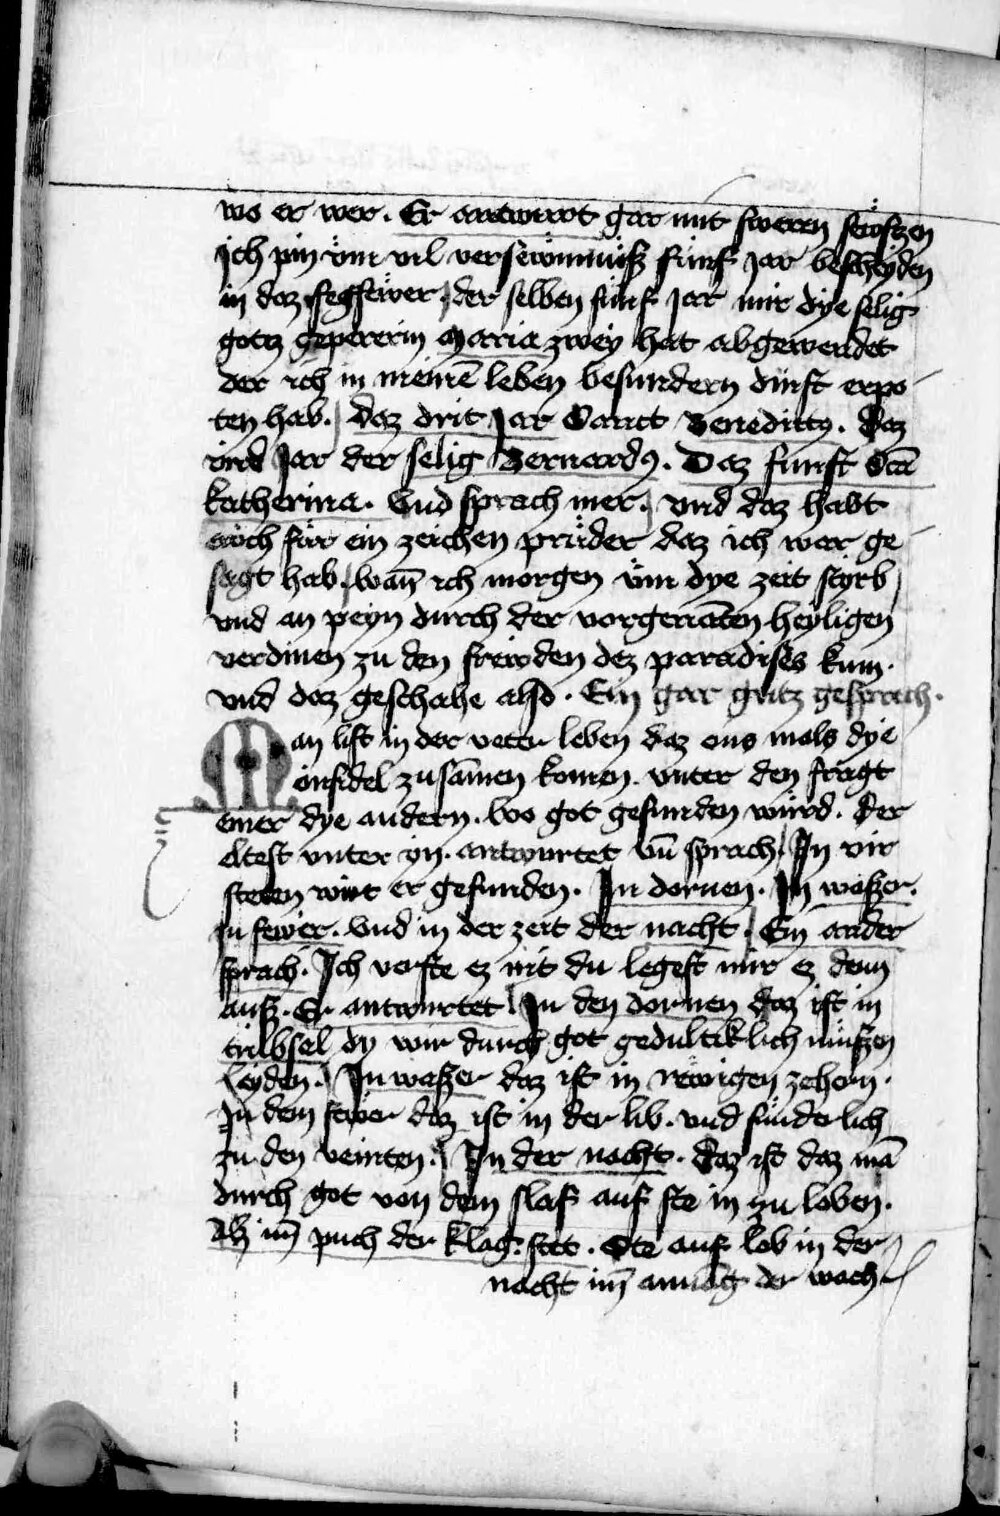 wo er wer. Er antwurt gar mit sweren sewftzen
Ich pin vm vil versewmnüß fünf Jar bescheyden
in daz fegfewer. der selben fünf Jar mir dye selig
gotz gepererin Maria zwey hat abgewendet
der ich in meinē leben besundern dinst erpo
ten hab. daz drit Jar Sanct Benedictꝰ. daz
vird Jar der selig Bernardꝰ. Daz funft Scā
katherina. Vnd sprach mer. vnd daz habt
ewch für ein zeichen prüder daz ich war ge
sagt hab. wan̄ ich morgen vm dye zeit styrb
vnd an peyn durch der vorgenāten heyligen
verdinen zu den frewden dez paradises kum.
vnd daz geschahe also. Ein gar gutz gesprech.
Man list in der veter leben daz ens mals dye
einsidel zu sāmen komen. vnter den fragt
einer dye andern. wo got gefunden würd. der
eltest vnter yn. antwurtet vn̄ sprach. In vir
steten wirt er gefunden. In dornen. In waßer.
in fewer. vnd in der zeit der nacht. Ein ander
sprach. Ich verste ez nit du legest mir ez denn
auß. Er antwurtet In den dornen daz ist in
trübsel dy wir durch got gedultiklich müßen
leyden. In waßer daz ist in rewigen zehern.
In dem fewer daz ist in der lib. vnd sunderlich
zu den veinten. In der nacht. daz ist daz mā
durch got von dem slaf auf ste in zu loben.
Alz im̄ puch der klag. stet. Ste auf lob in der
nacht im̄ anuāg der wach